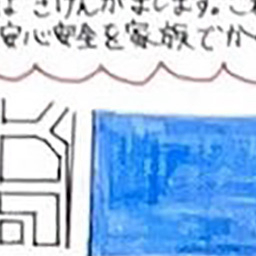 よ きけんがまします。これ
安心安全を家族でか